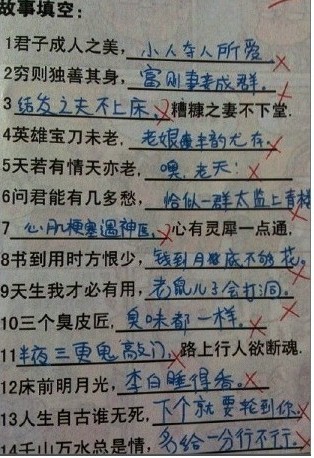 故事填空：
1君子成人之美，小人夺人所爱
2穷则独善其身，富则妻妾成群。
3结发之夫不上床，糟糠之妻不下堂.
4英雄宝刀未老，老娘风韵尤存。
5天若有情天亦老，噢，老天！
6问君能有几多愁，恰似一群太监上青楼
7心肌梗塞遇神医，心有灵犀一点通，
8书到用时方恨少，钱到月底不够花。
9天生我才必有用，老鼠儿子会打洞。
10三个臭皮匠，臭味都一样。
11半夜三更鬼敲门，路上行人欲断魂.
12床前明月光，李白睡得香。
13人生自古谁无死，下个就要轮到你。
14千山万水总是情，多给一分行不行。